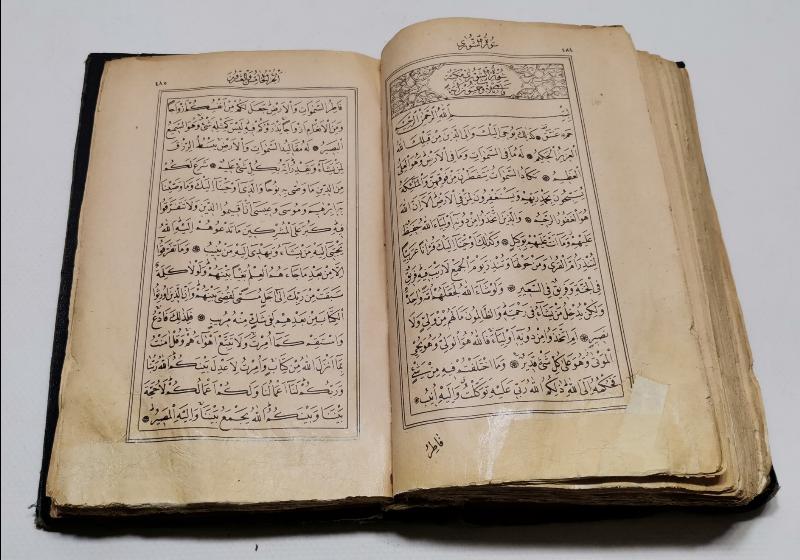 سورة الشورى
٤٨٤
سورة الشورى مكية
بسم الله الرحمن الرحيم
حم عسق ۞ كذلك يوحي اليك والى الذين من قبلك الله
العزيز الحكيم ۞ له ما في السموات وما في الارض وهو العلي
العظيم ۞ تكاد السموات يتفطرن من فوقهن والملئكة
يسبحون بحمد ربهم ويستغفرون لمن في الارض الا ان الله
هو الغفور الرحيم ۞ والذين اتخذوا من دونه اولياء الله حفيظ
عليهم وما انت عليهم بوكيل ۞ وكذلك اوحينا اليك قرانا عربيا
لتنذر ام القرى ومن حولها وتنذر يوم الجمع لا ريب فيه فريق
في الجنة وفريق في السعير ۞ ولو شاء الله لجعلهم امة واحدة
ولكن يدخل من يشاء في رحمته والظالمون ما لهم من ولي ولا
نصير ۞ ام اتخذوا من دونه اولياء فالله هو الولي وهو يحيي
الموتى وهو على كل شيء قدير ۞ وما اختلفتم فيه من شيء
فحكمه الى الله ذلكم الله ربي عليه توكلت واليه انيب ۞
فاطر
الجزء الخامس والعشرون
٤٨٥
فاطر السموات والارض جعل لكم من انفسكم ازواجا
ومن الانعام ازواجا يذرؤكم فيه ليس كمثله شيء وهو السميع
البصير ۞ له مقاليد السموات والارض يبسط الرزق
لمن يشاء ويقدر انه بكل شيء عليم ۞ شرع لكم
من الدين ما وصى به نوحا والذي اوحينا اليك وما وصينا
به ابرهيم وموسى وعيسى ان اقيموا الدين ولا تتفرقوا
فيه كبر على المشركين ما تدعوهم اليه الله
يجتبي اليه من يشاء ويهدي اليه من ينيب ۞ وما تفرقوا
الا من بعد ما جاءهم العلم بغيا بينهم ولولا كلمة
سبقت من ربك الى اجل مسمى لقضي بينهم وان الذين اورثوا
الكتاب من بعدهم لفي شك منه مريب ۞ فلذلك فادع
واستقم كما امرت ولا تتبع اهواءهم وقل امنت
بما انزل الله من كتاب وامرت لاعدل بينكم الله ربنا
وربكم لنا اعمالنا ولكم اعمالكم لا حجة
بيننا وبينكم الله يجمع بيننا واليه المصير ۞